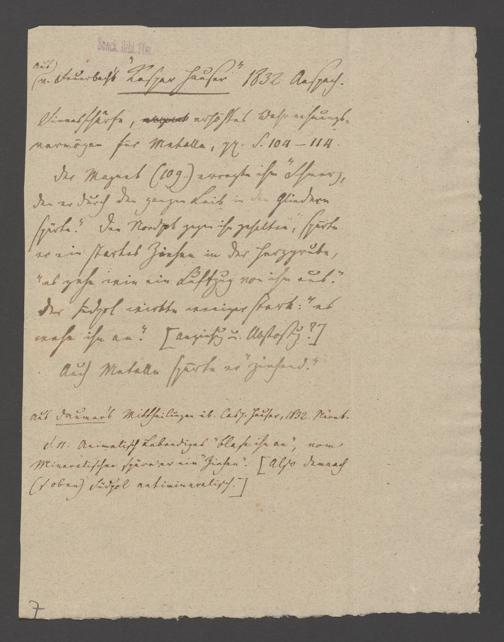 Senck. Bibl. Ffm.
aus
(v. Feuerbach's "Kaspar Hauser" 1832 Anspach.
Sinnesschärfe, erhöhtes Wahrnehmungs-
vermögen für Metalle, S. 104 – 114.
Der Magnet (109.) erregte ihm "Schmerz,
den er durch den ganzen Leib in den Gliedern
spürte." Den Nordpol gegen ihn gehalten, spürte
er ein starkes Ziehen in der Herzgrube,
"als gehe ein Luftzug von ihm aus."
Der Südpol wirkte weniger stark: "es
wehe ihn an." [Anziehg u. Abstoßg?]
Auch Metalle spürte er "ziehend."
aus Daumer's Mittheilungen üb. Casp. Hauser, 1832. Nürnb.
S. 11. Animalisch Lebendiges "blase ihn an", vom
Mineralischen spüre er ein "Ziehen". [Also demnach
(s. oben) Südpol antimineralisch.]
7